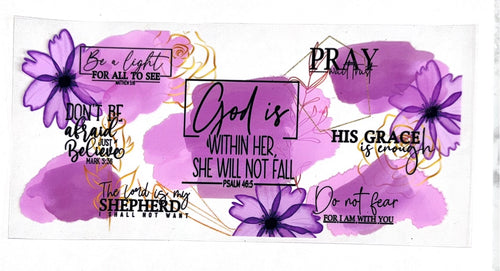 Be a light
FOR ALL TO SEE
MATTHEW 5:16
DON'T BE
afraid
JUST
Believe
MARK 5:36
The Lord is my
SHEPHERD
I SHALL NOT WANT
God is
WITHIN HER,
SHE WILL NOT FALL
PSALM 46:5
PRAY
wait trust
HIS GRACE
is enough
Do not fear
FOR I AM WITH YOU